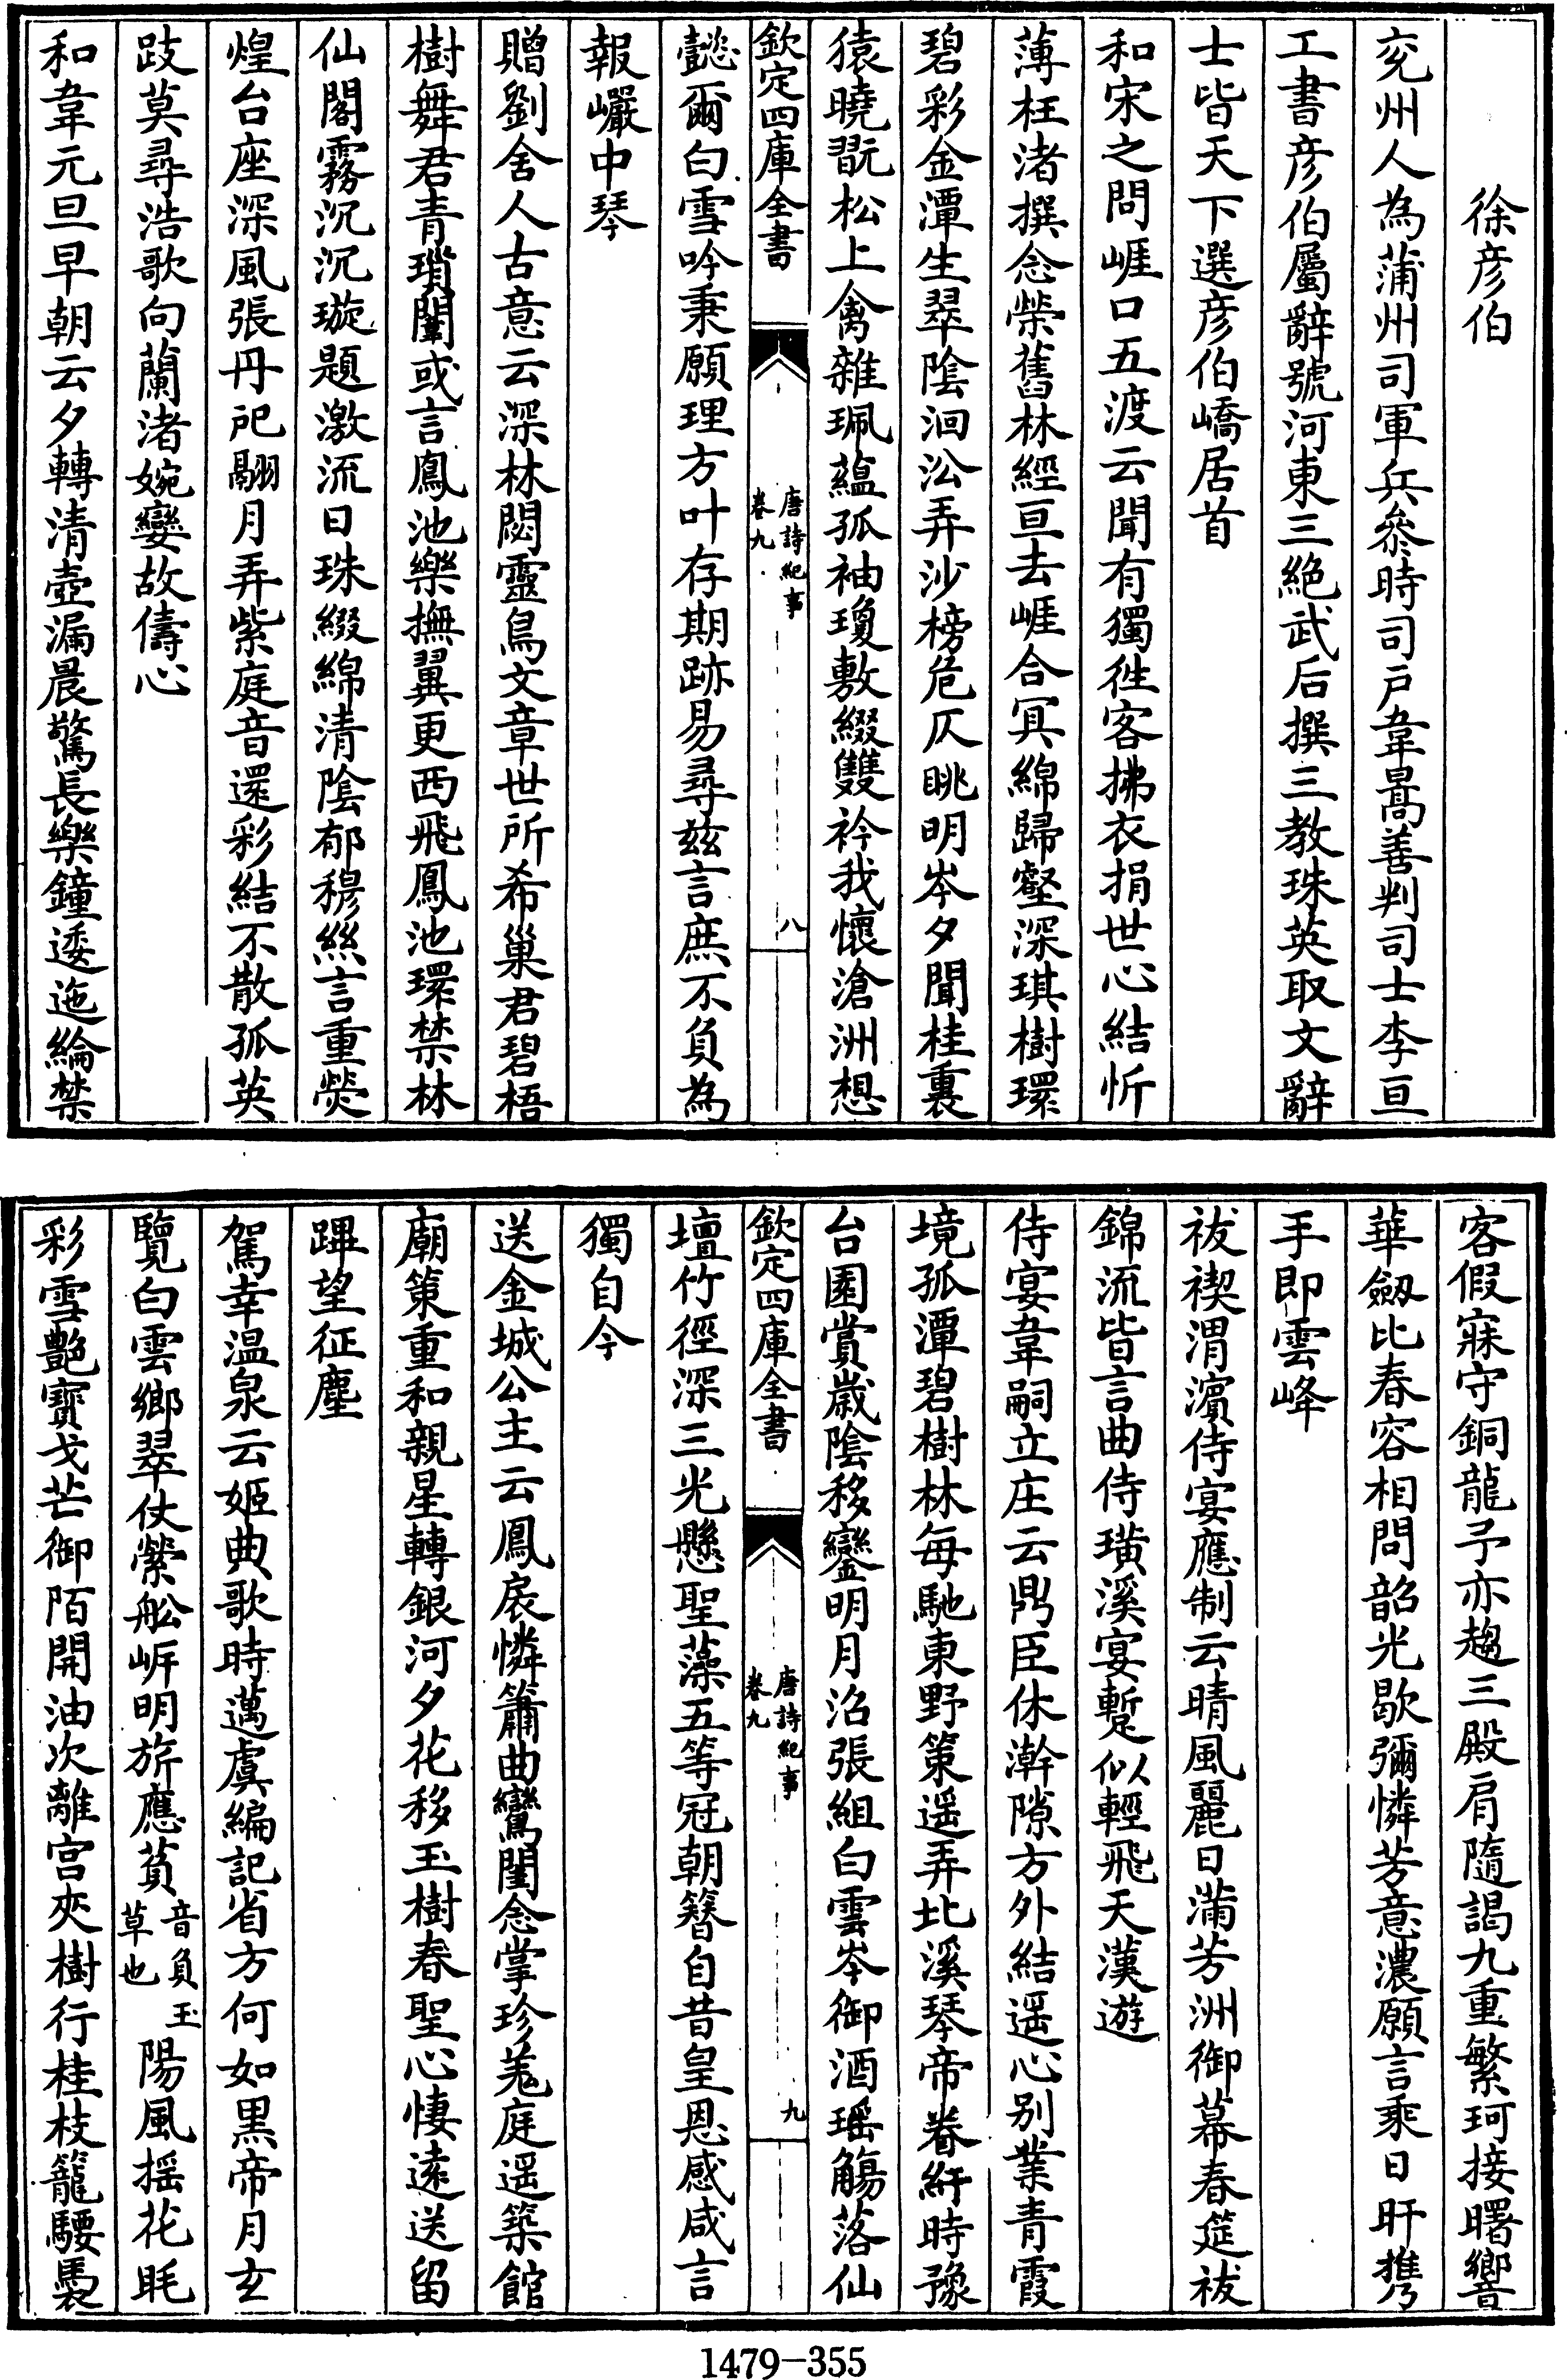 徐彦伯
兖州人為蒲州司軍兵參時司戸韋暠善判司士李亘
工書彦伯屬辭號河東三絶武后撰三教珠英取文辭
士皆天下選彦伯嶠居首
和宋之問崕口五渡云聞有獨徃客拂衣捐世心結忻
薄枉渚撰念榮舊林經亘去崕合冥綿歸壑深琪樹環
碧彩金潭生翠陰洄沿弄沙榜危仄眺明岑夕聞桂裏
猿曉翫松上禽雜珮藴孤袖瓊敷綴雙衿我懷滄洲想
欽定四庫全書
唐詩紀事
卷九
八
懿爾白雪吟秉願理方叶存期跡易尋兹言庶不負為
報巖中琴
贈劉舍人古意云深林閟靈鳥文章世所希巢君碧梧
樹舞君青瑣闈或言鳳池樂撫翼更西飛鳳池環禁林
仙閣霧沉沉璇題激流日珠綴綿清陰郁穆絲言重熒
煌台座深風張丹戺翮月弄紫庭音還彩結不散孤英
跂莫尋浩歌向蘭渚婉孌故儔心
和韋元旦早朝云夕轉清壺漏晨驚長樂鐘逶迤綸禁
客假寐守銅龍予亦趨三殿肩隨謁九重繁珂接曙響
華劔比春容相問韶光歇彌憐芳意濃願言乘日旰携
手即雲峰
祓禊渭濵侍宴應制云晴風麗日滿芳洲御幕春筵祓
錦流皆言曲侍璜溪宴蹔似輕飛天漢遊
侍宴韋嗣立庄云鼎臣休澣隙方外結遥心别業青霞
境孤潭碧樹林每馳東野策遥弄比溪琴帝眷紆時豫
台園賞歲陰移鑾明月沼張組白雲岑御酒瑶觴落仙
欽定四庫全書
唐詩紀事
卷九
九
壇竹徑深三光懸聖藻五等冠朝簪自昔皇恩感咸言
獨自今
送金城公主云鳳扆憐簫曲鸞閨念掌珍羗庭遥築館
廟策重和親星轉銀河夕花移玉樹春聖心悽逺送留
蹕望征塵
駕幸温泉云姬典歌時邁虞編記省方何如黒帝月玄
覽白雲鄉翠仗縈船岍明旂應萯音負玉
草也
陽風摇花眊
彩雪艶寳戈芒御陌開油次離宫夾樹行桂枝籠騕褭
1479-355